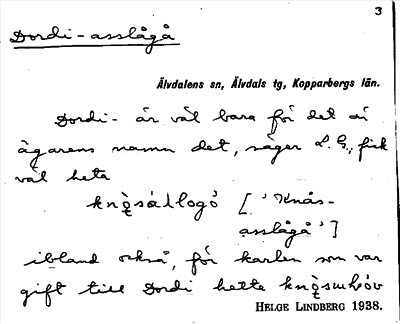 3
Dordi-asslågå
Älvdalens sn, Älvdals tg, Kopparbergs län.
Dordi- är väl bara för det är
ägarens namn det, säger L. G., fick
väl heta
knǫ̀sállogó ['Knås-
asslågå']
ibland också, för karlen som var
gift till Dordi hette
HELGE LINDBERG 1938.